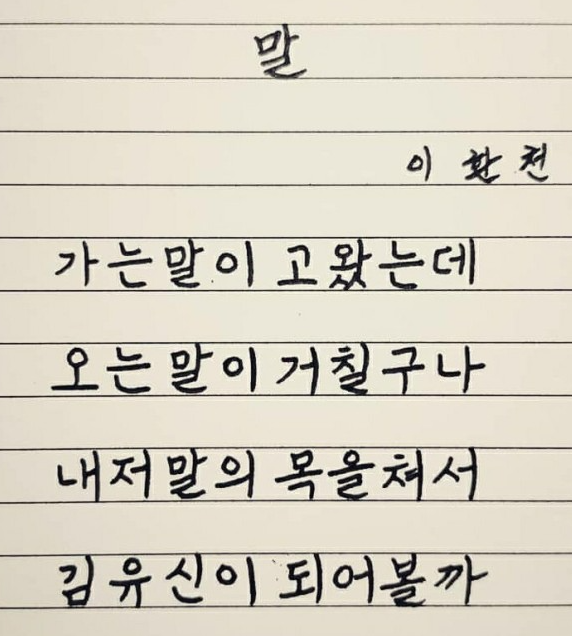 말
이환천
가는말이 고왔는데
오는말이 거칠구나
내저말의 목을쳐서
김유신이 되어볼까